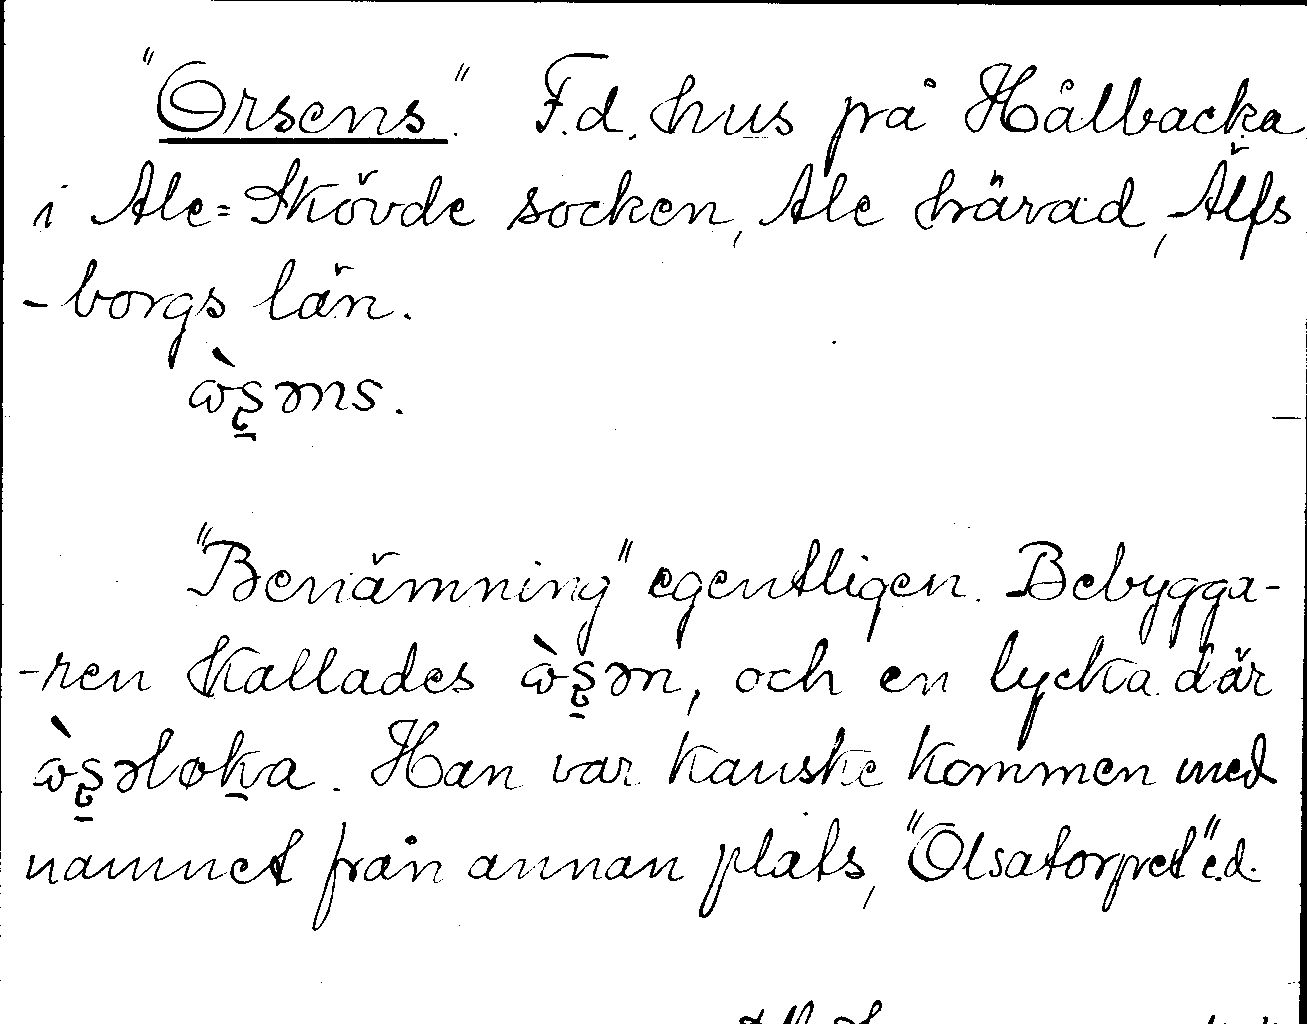 "Orsens". F.d. hus på Hålbacka
i Ale=Skövde socken, Ale härad, Älfs
-borgs län.
ὼʂəns.
"Benämning" egentligen. Bebygga-
-ren kallades ὼʂən, och en lycka där
ὼʂəløka. Han var kanske kommen med
namnet från annan plats, "Olsatorpet" e.d.